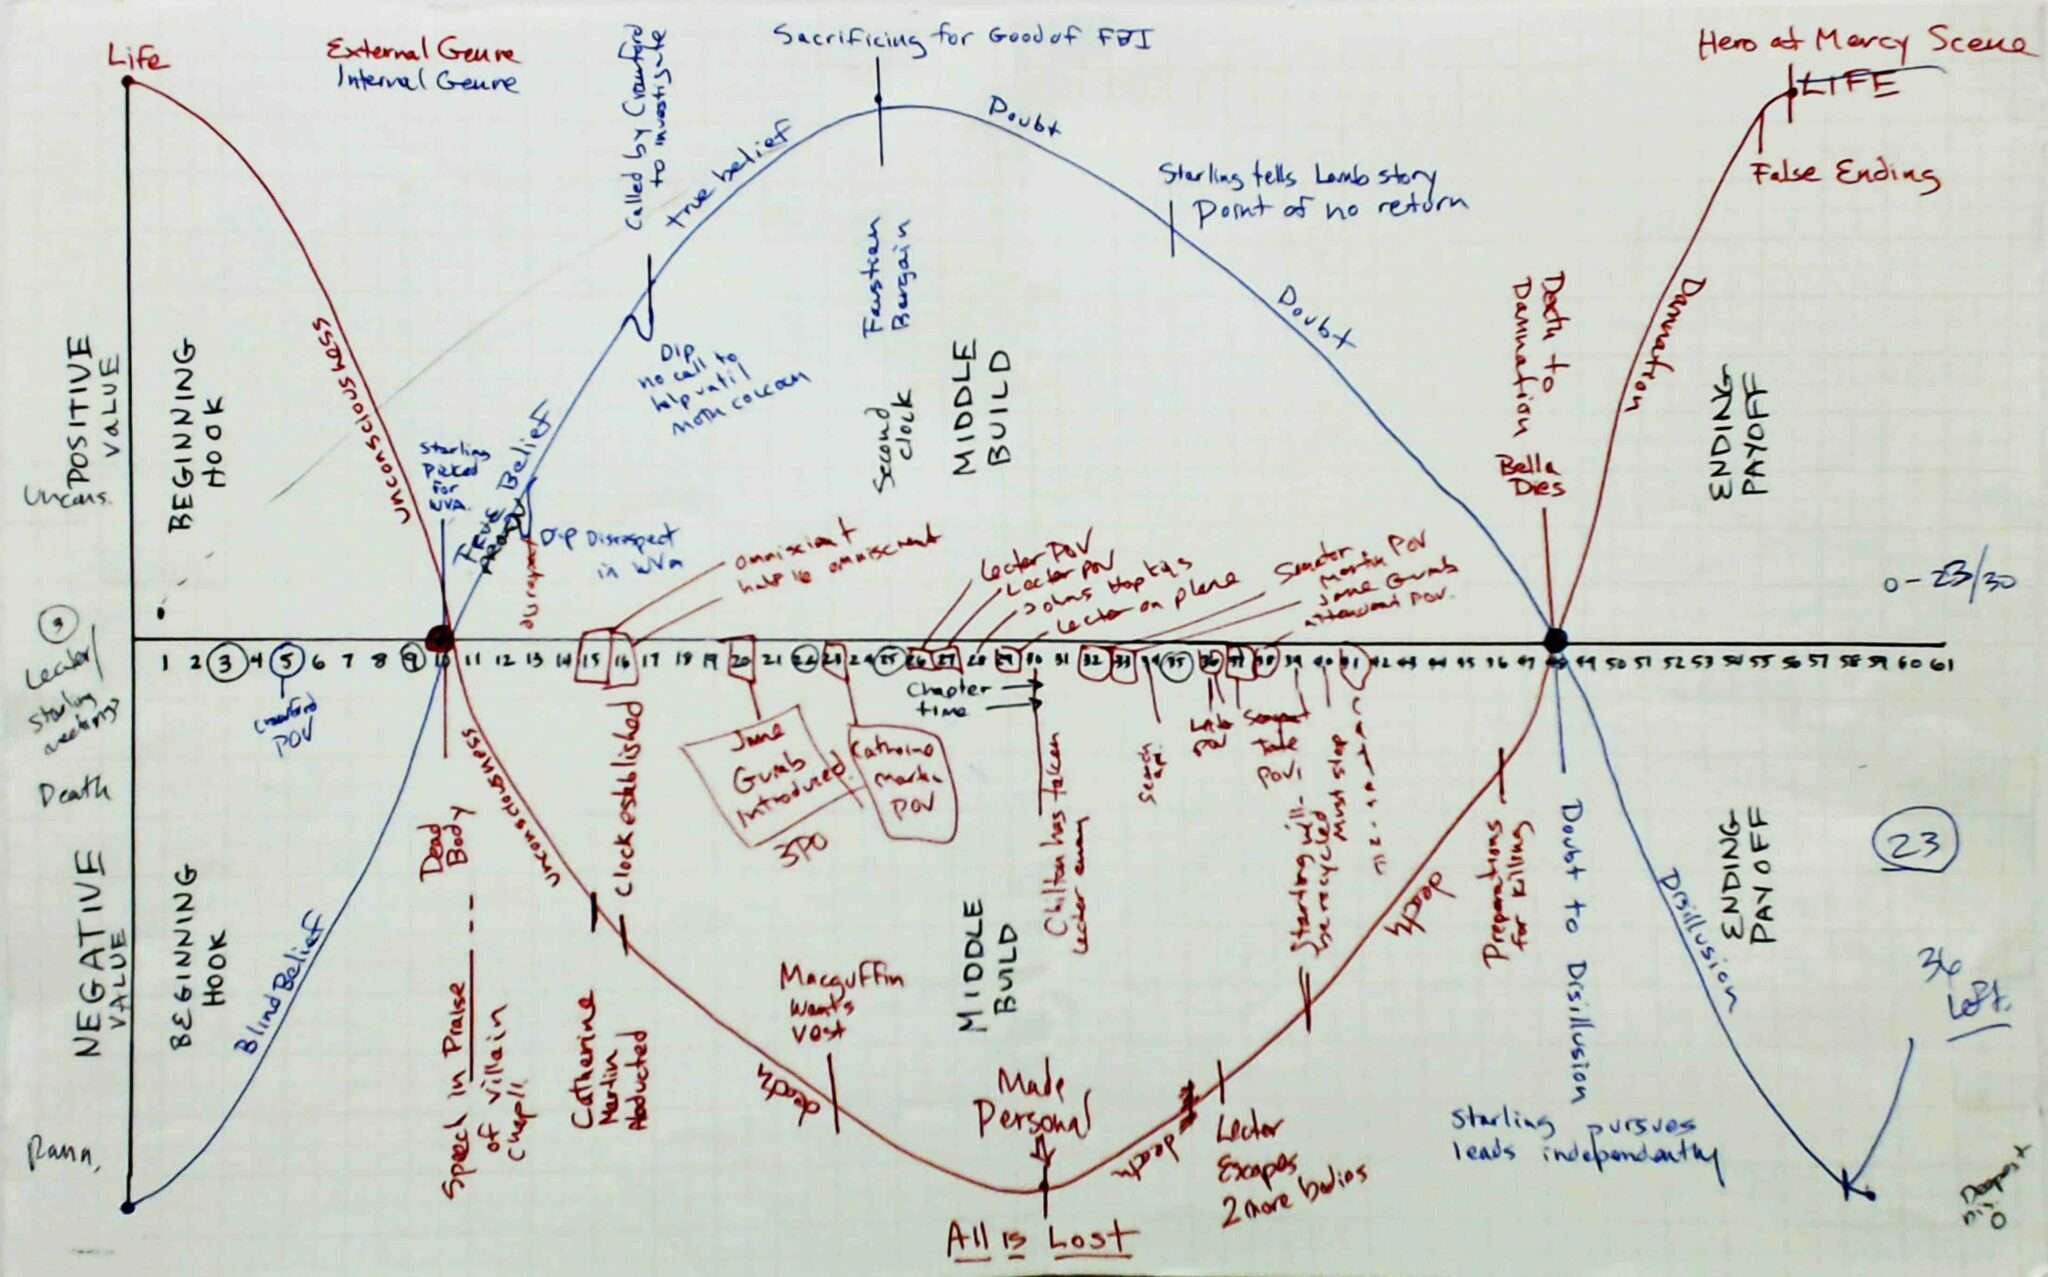 Life
External Genre
Internal Genre
Called by Crawford
to investigate
Sacrificing for Good of FBI
Hero at Mercy Scene
LIFE
False Ending
true belief
Doubt
Starling tells Lamb story
Point of no return
Doubt
Faustian
Bargain
Dip
no call to
help until
moth cocoon
Second
clock
MIDDLE
BUILD
Death to
Damnation
Damnation
Bella
Dies
ENDING
PAYOFF
POSITIVE
VALUE
BEGINNING
HOOK
UNCONSCIOUSNESS
Starling
Picked
for
WVA.
Belief
Dip Disrespect
in WVa
omniscient
Lecter POV
Lecter POV
Johns Hopkins
Lecter on plane
Senator
Martin POV
Jame Gumb
attendant POV.
0-23/30
3
Lecter/
Starling
meetings
1 2 3 4 5 6 7 8 9 10 11 12 13 14 15 16 17 18 19 20 21 22 23 24 25 26 27 28 29 30 31 32 33 34 35 36 37 38 39 40 41 42 43 44 45 46 47 48 49 50 51 52 53 54 55 56 57 58 59 60 61
Crawford
POV
Chapter
time
Death
Dead
Body
UNCONSCIOUSNESS
Clock established
Jame
Gumb
Introduced
Catherine
Martin
POV
Chilton has taken
Lecter away
Search
POV
Starling will
be recycled
Must stop
death
Preparations
for killing
Doubt to Disillusion
Disillusion
ENDING
PAYOFF
23
36
Left.
NEGATIVE
VALUE
BEGINNING
HOOK
Blind Belief
Speech in Praise
of villain
Catherine
Martin
Abducted
Macguffin
wants
MIDDLE
BUILD
death
Made
Personal
death
Lecter
Escapes
2 more bodies
Starling pursues
leads independently
All is Lost